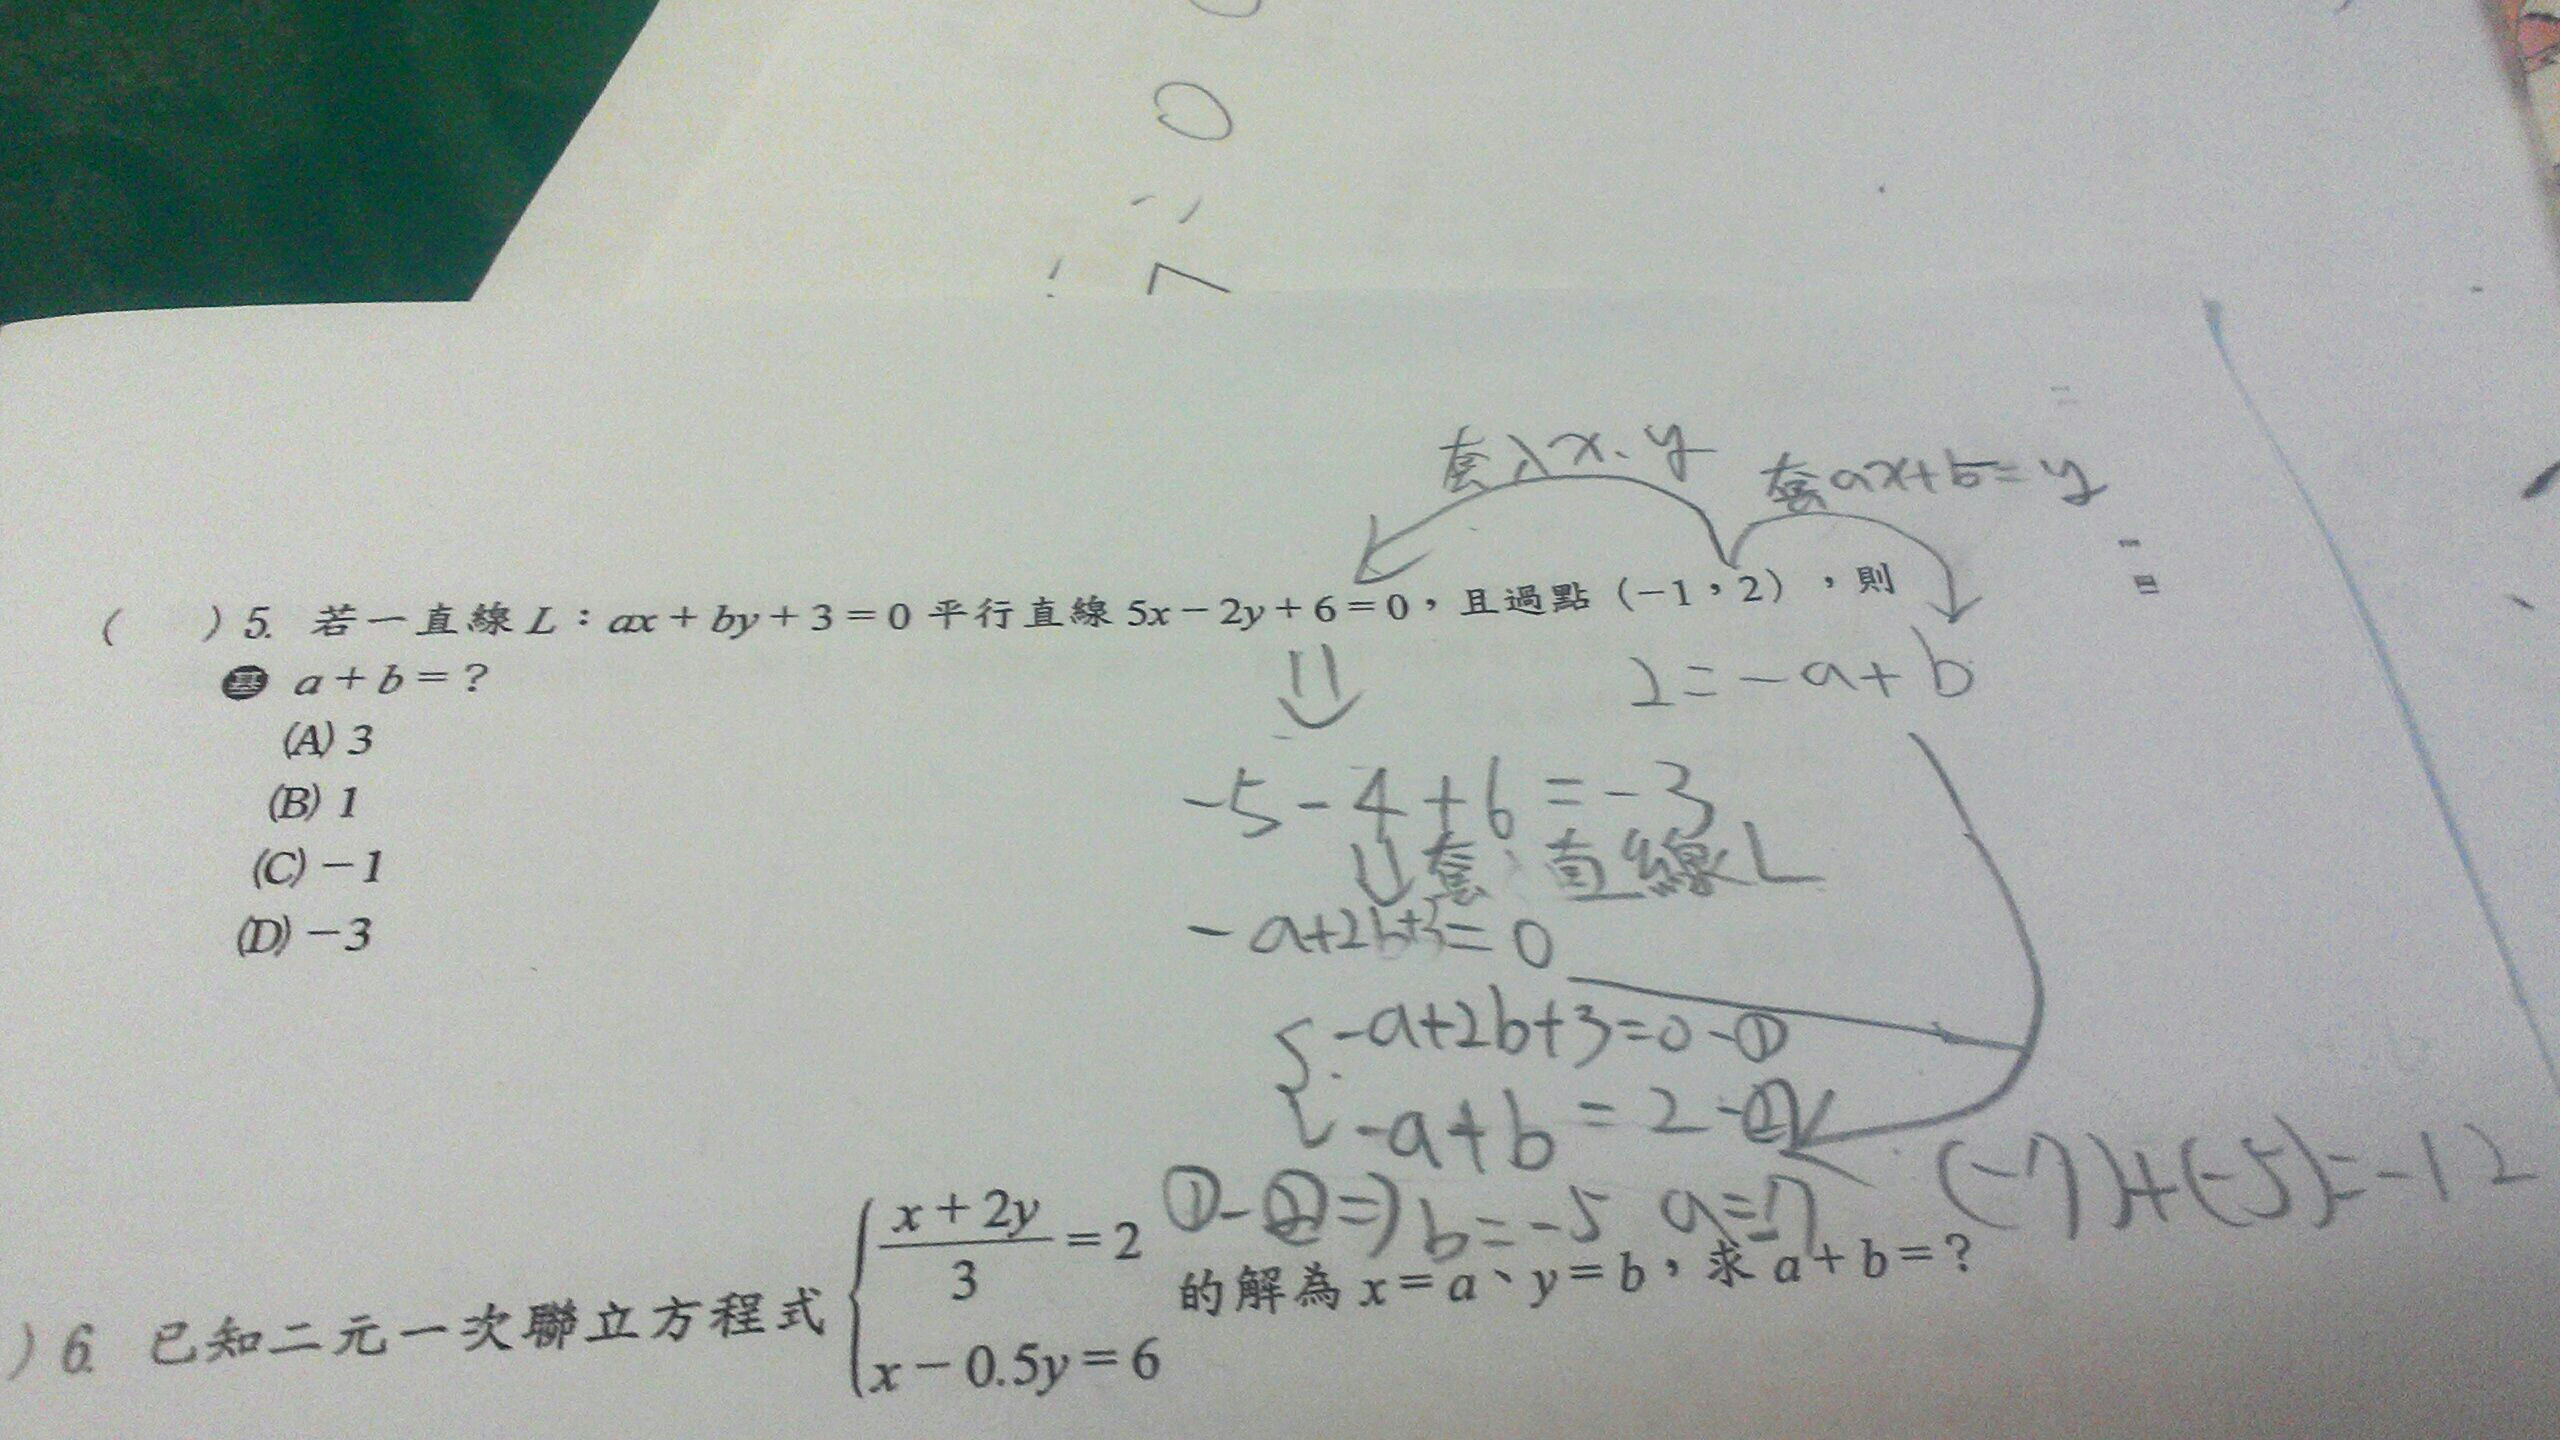 套入x、y
套ax+b=y
( )5. 若一直線L：ax+by+3=0平行直線5x-2y+6=0，且過點(-1，2)，則
基 a+b=?
2=-a+b
(A) 3
(B) 1
(C) -1
(D) -3
-5-4+6=-3
套 直線L
-a+2b+3=0
-a+2b+3=0-①
-a+b=2-②
①-②⇒b=-5 a=-7
(-7)+(-5)=-12
)6. 已知二元一次聯立方程式{(x+2y)/3=2 的解為x=a、y=b，求a+b=?
x-0.5y=6